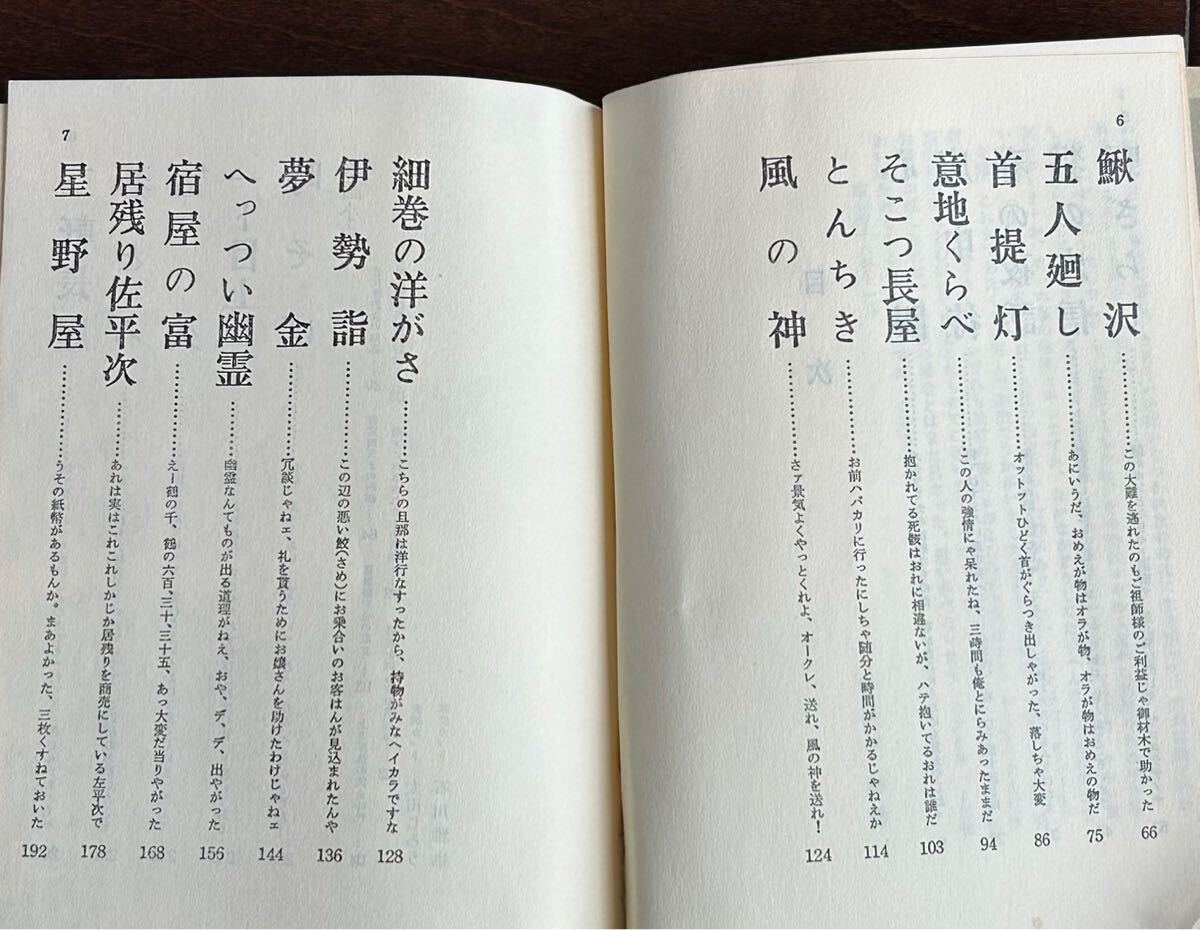 6
鰍沢…………この大難を逃れたのもご祖師様のご利益じゃ御材木で助かった 66
五人廻し…………あにいうだ、おめえが物はオラが物、オラが物はおめえの物だ 75
首提灯…………オットットひどく首がぐらつき出しゃがった、落しちゃ大変 86
意地くらべ…………この人の強情にゃ呆れたね、三時間も俺とにらみあったままだ 94
そこつ長屋…………抱かれてる死骸はおれに相違ないが、ハテ抱いてるおれは誰だ 103
とんちき…………お前ハバカリに行ったにしちゃ随分と時間がかかるじゃねえか 114
風の神…………さァ景気よくやっとくれよ、オークレ、送れ、風の神を送れ! 124
7
細巻の洋がさ……こちらの旦那は洋行なすったから、持物がみなヘイカラですな 128
伊勢詣…………この辺の悪い鮫(さめ)にお乗合いのお客はんが見込まれたんや 136
夢金…………冗談じゃねェ、礼を貰うためにお嬢さんを助けたわけじゃねェ 144
へっつい幽霊……幽霊なんてものが出る道理がねえ、おや、デ、デ、出やがった 156
宿屋の富…………えー鶴の千、鶴の六百、三十、三十五、あっ大変だ当りやがった 168
居残り佐平次……あれは実はこれこれしかじか居残りを商売にしている左平次で 178
星野屋…………うその紙幣があるもんか。まあよかった、三枚くすねておいた 192